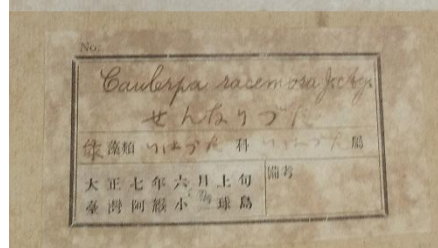 No.
Caulerpa racemosa J.Ag.
せんなりづた
緑藻類 いはづた 科 いはづた 属
大正七年六月上旬
臺灣阿緱小琉球島
備考